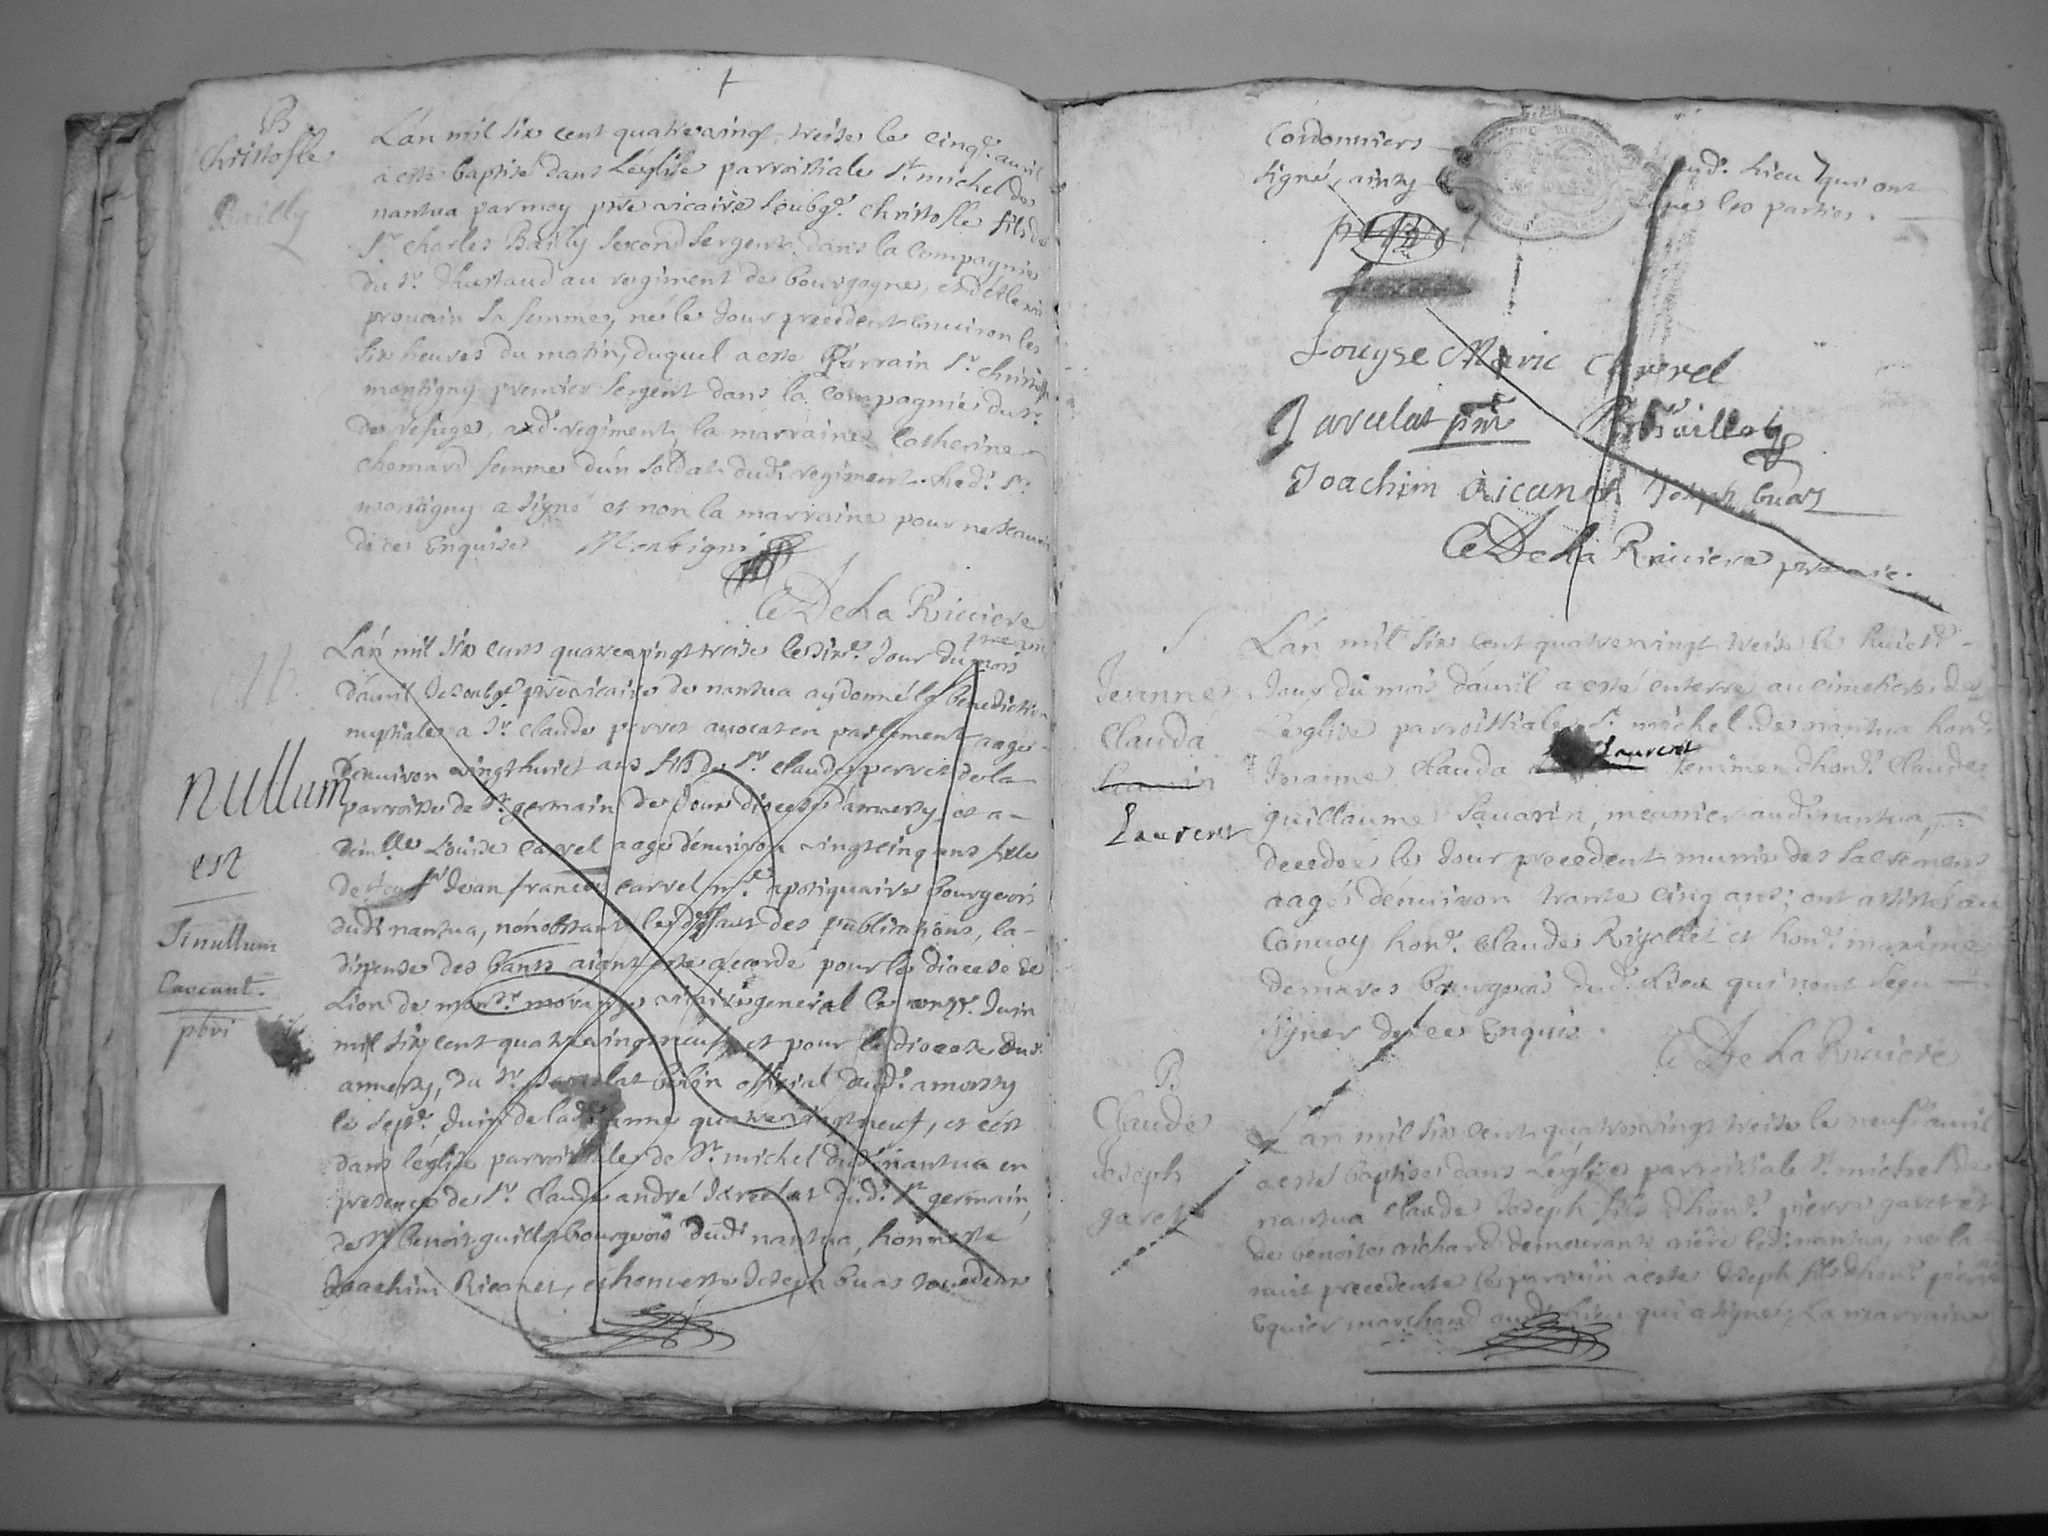 B
Christofle
Bailly
L'an mil six cent quatrevingt treise le cinq.e avril
a esté baptisé dans l'eglise parroissiale S.t michel de
nantua par moy pbre vicaire soubg.é christofle fils de
S.r charles Bailly second sergent dans la compagnie
du S.r au regiment de bourgogne, et
sa femme, né le jour precedent environ les
six heures du matin, duquel a esté Parrain S.r christofle
montigny premier sergent dans la compagnie du S.r
de refuge, aud.t regiment, la marraine Catherine
chomard femme d'un soldat dud.t regiment. led.t S.r
montigny a signé et non la marraine pour ne scavoir
de ce Enquise Montigni
C De La Riviere
pbre vic
L'an mil six cents quatrevingt treise le six.e jour du mois
d'avril Je soubg.é pbre vicaire de nantua ay donné la benediction
nuptiale a S.r claude perret avocat en parlement aagé
d'environ vingt huict ans fils du S.r claude perret de la
parroisse de S.t germain de Joux diocese d'annessy, et a
dem.lle Louise Carrel aagé d'environ vingt cinq ans fille
de feu S.r Jean francois carrel m.e apotiquaire bourgeois
dud.t nantua, nonobstant le deffaut des publications, la
dispense des bans aiant esté accordé pour le diocese de
Lion de mons.r morange vicaire general le onz.e Juin
mil six cent quatrevingt neuf, et pour le diocese dud.
annessy, du S.r official dud.t annessy
le sept.e Juin de lad.te année quatre vingt neuf, et c'est
dans l'eglise parroissiale de S.t michel dud.t nantua en
presence de S.r Claude andré Jarcelat dud.t S.t germain,
de S.r benoit guillot bourgeois dud.t nantua, honneste
Joachim Ricanet, et honneste Joseph buas
nullum
est
Si nullum
caveant
pbri
Cordonniers aud.t lieu qui ont
signé, ainsy que les parties.
Louyse Marie Carrel
Jarcelat pnt B Guillot
Joachim Ricanet Joseph buas
C De La Riviere pbre vic.
S
Jeanne
Clauda
Laurent
L'an mil six cent quatrevingt treise le huict.e
Jour du mois d'avril a esté enterré au cimetiere de
l'eglise parroissiale S.t michel de nantua hon.e
Jeanne Clauda Laurent femme d'hon.e Claude
guillaume Savarin, meunier aud.t nantua,
decedée le jour precedent munie des sacremens
aagée d'environ trante cinq ans; ont assisté au
Convoy hon.e Claude Rigollet et hon.e maxime
demares bourgeois dud.t Lieu qui n'ont sçeu
signer de ce Enquis.
C De La Riviere
B
Claude
Joseph
garet
L'an mil six cent quatrevingt treise le neuf avril
a esté baptisé dans l'eglise parroissiale S.t michel de
nantua Claude Joseph fils d'hon.e pierre garet et
de benoite richard demeurants riere led.t nantua, né la
nuit precedente le parrain a esté Joseph fils d'hon.e pierre
Equier marchand aud.t lieu qui a signé, La marraine